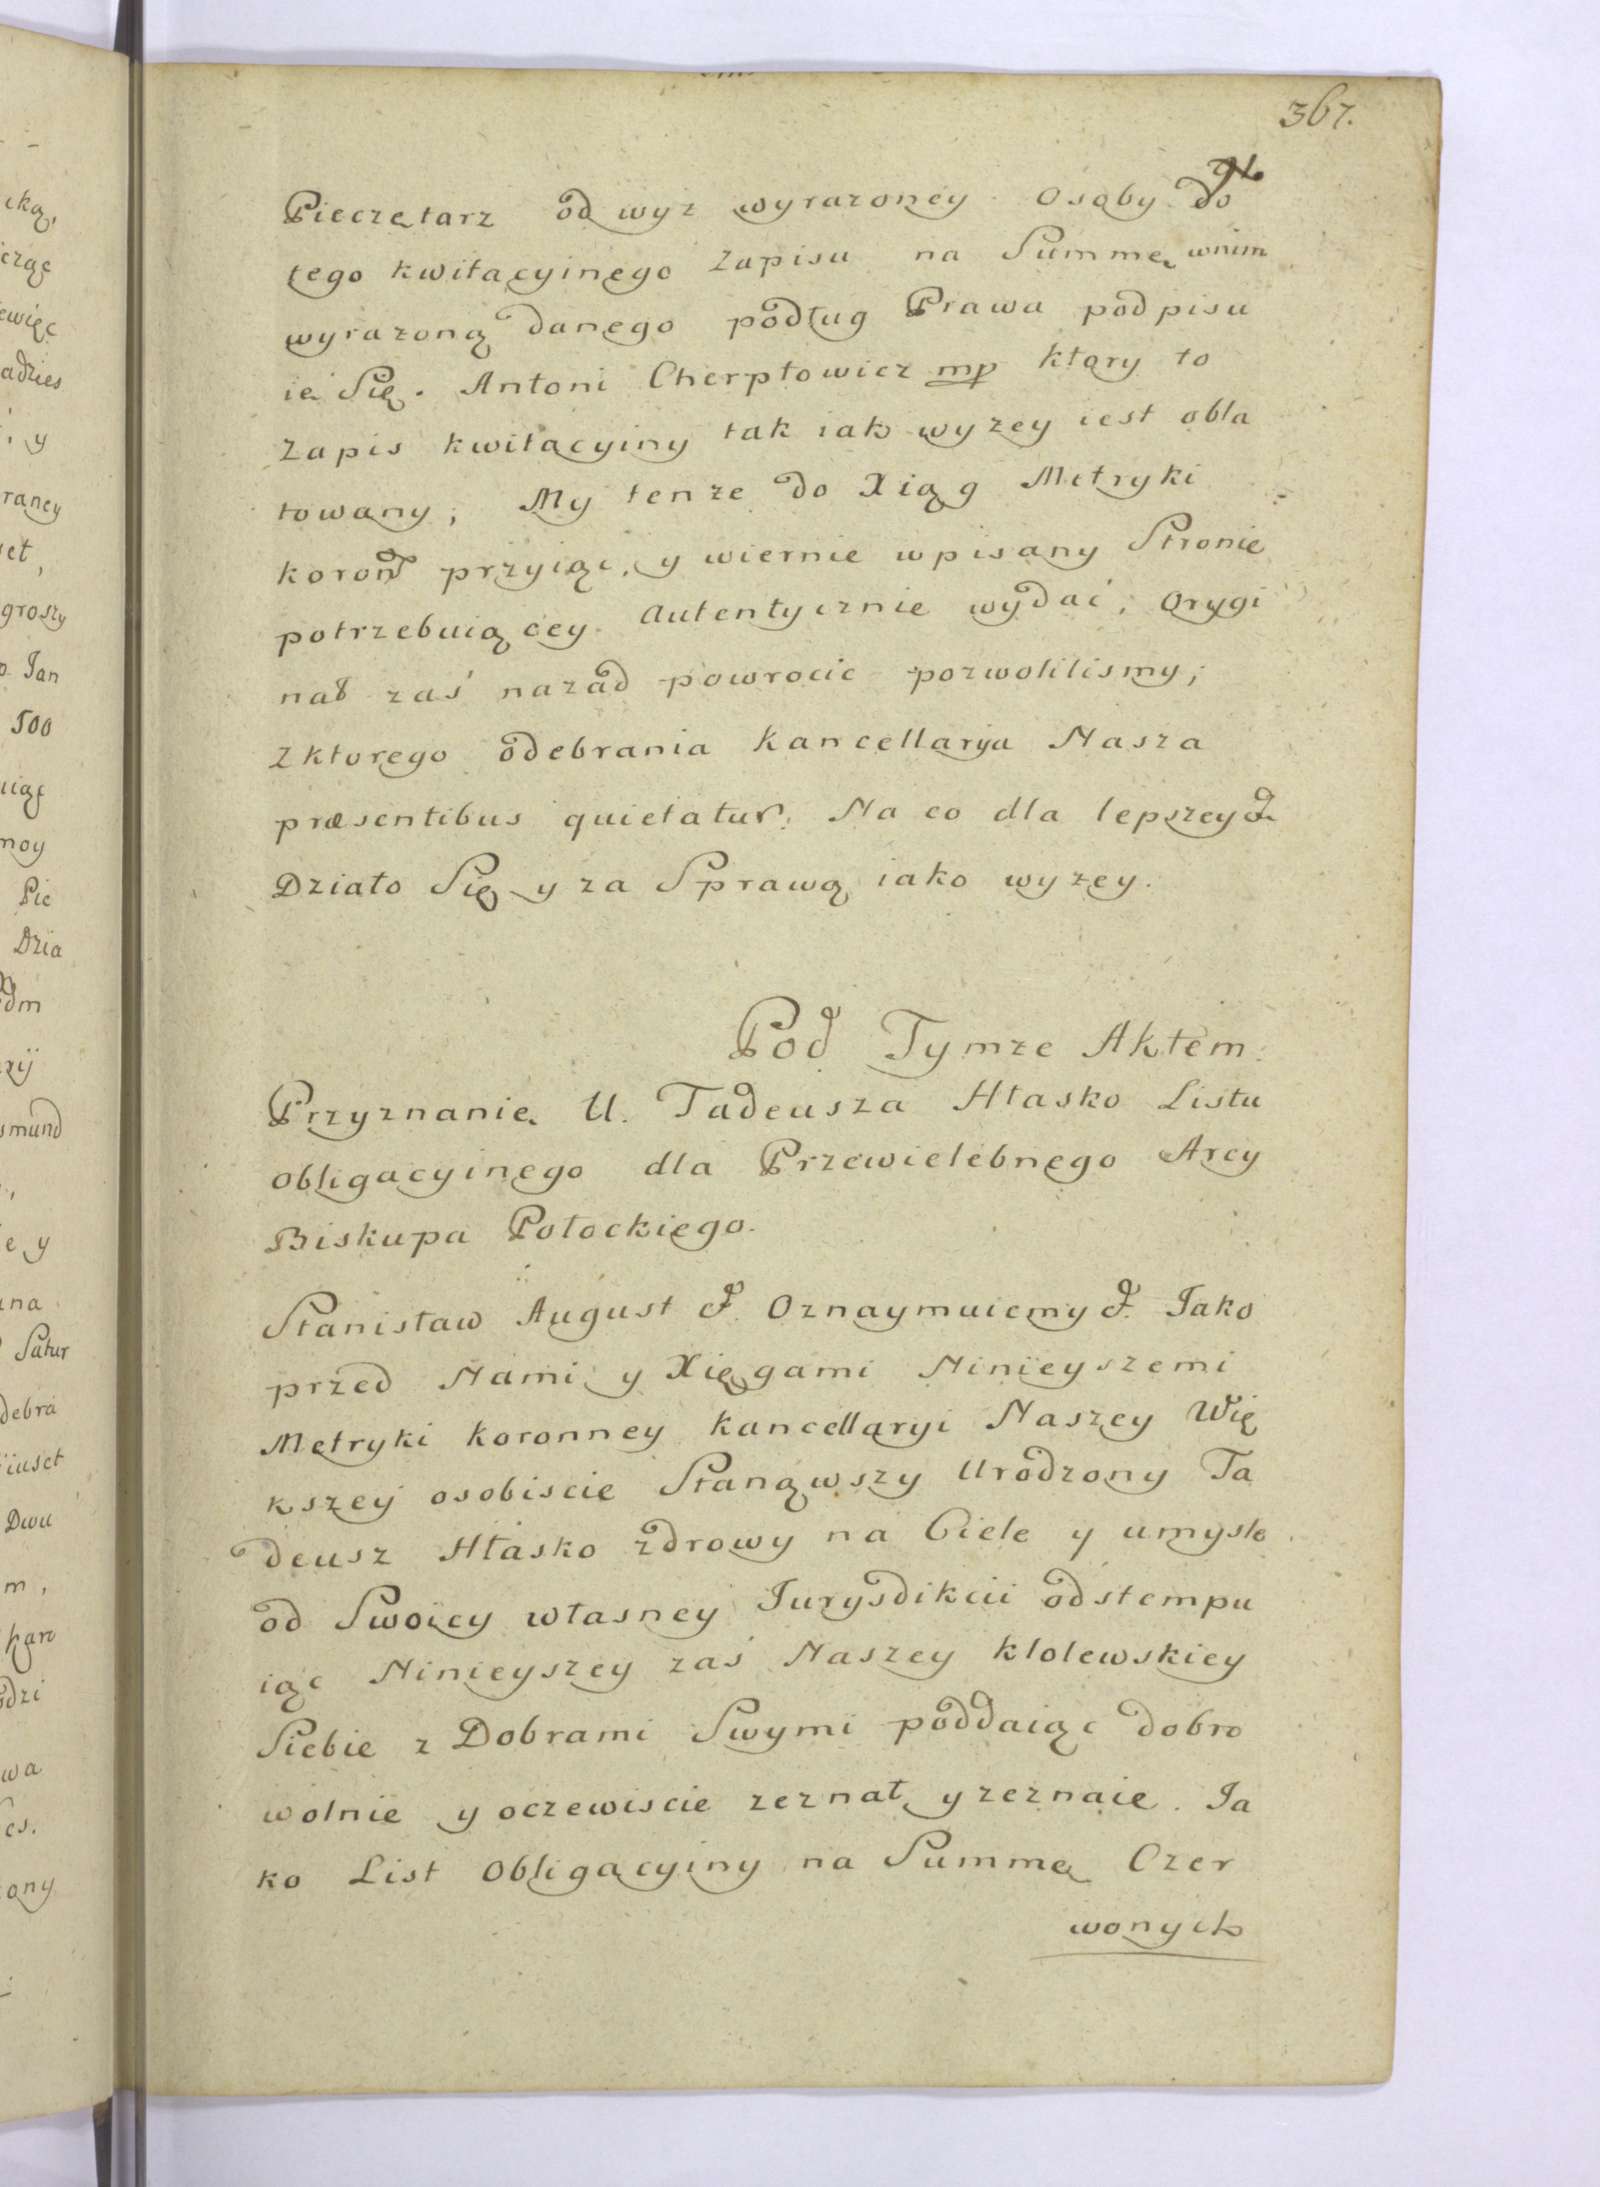 367.
Pieczętarz od wyz wyrazoney Osoby do
tego kwitacyinego Zapisu na Summę wnim
wyrazoną danego podług Prawa podpisu
ie Się. Antoni Cherptowicz mp ktory to
Zapis kwitacyiny tak iak wyzey iest obla
towany, My tenze do Xiąg Metryki
koron przyiąc, y wiernie wpisany Stronie
potrzebuiącey Autentycznie wydać, Orygi
nał zaś nazad powrocic pozwolilismy;
Z ktorego odebrania Kancellarya Nasza
præsentibus quietatur. Na co dla lepszey &.
Działo Się y za Sprawą iako wyzey.
Pod Tymze Aktem.
Przyznanie U. Tadeusza Hłasko Listu
obligacyinego dla Przewielebnego Arcy
Biskupa Połockiego.
Stanisław August &. Oznaymuiemy &. Jako
przed Nami y Xięgami Ninieyszemi
Metryki Koronney Kancellaryi Naszey Wię
kszey osobiscie Stanąwszy Urodzony Ta
deusz Hłasko zdrowy na Ciele y umysle
od Swoiey własney Jurysdikcii odstempu
iąc Ninieyszey zaś Naszey klolewskiey
Siebie z Dobrami Swymi poddaiąc dobro
wolnie y oczewiscie zeznał y zeznaie. Ja
ko List Obligacyiny na Summę Czer
wonych